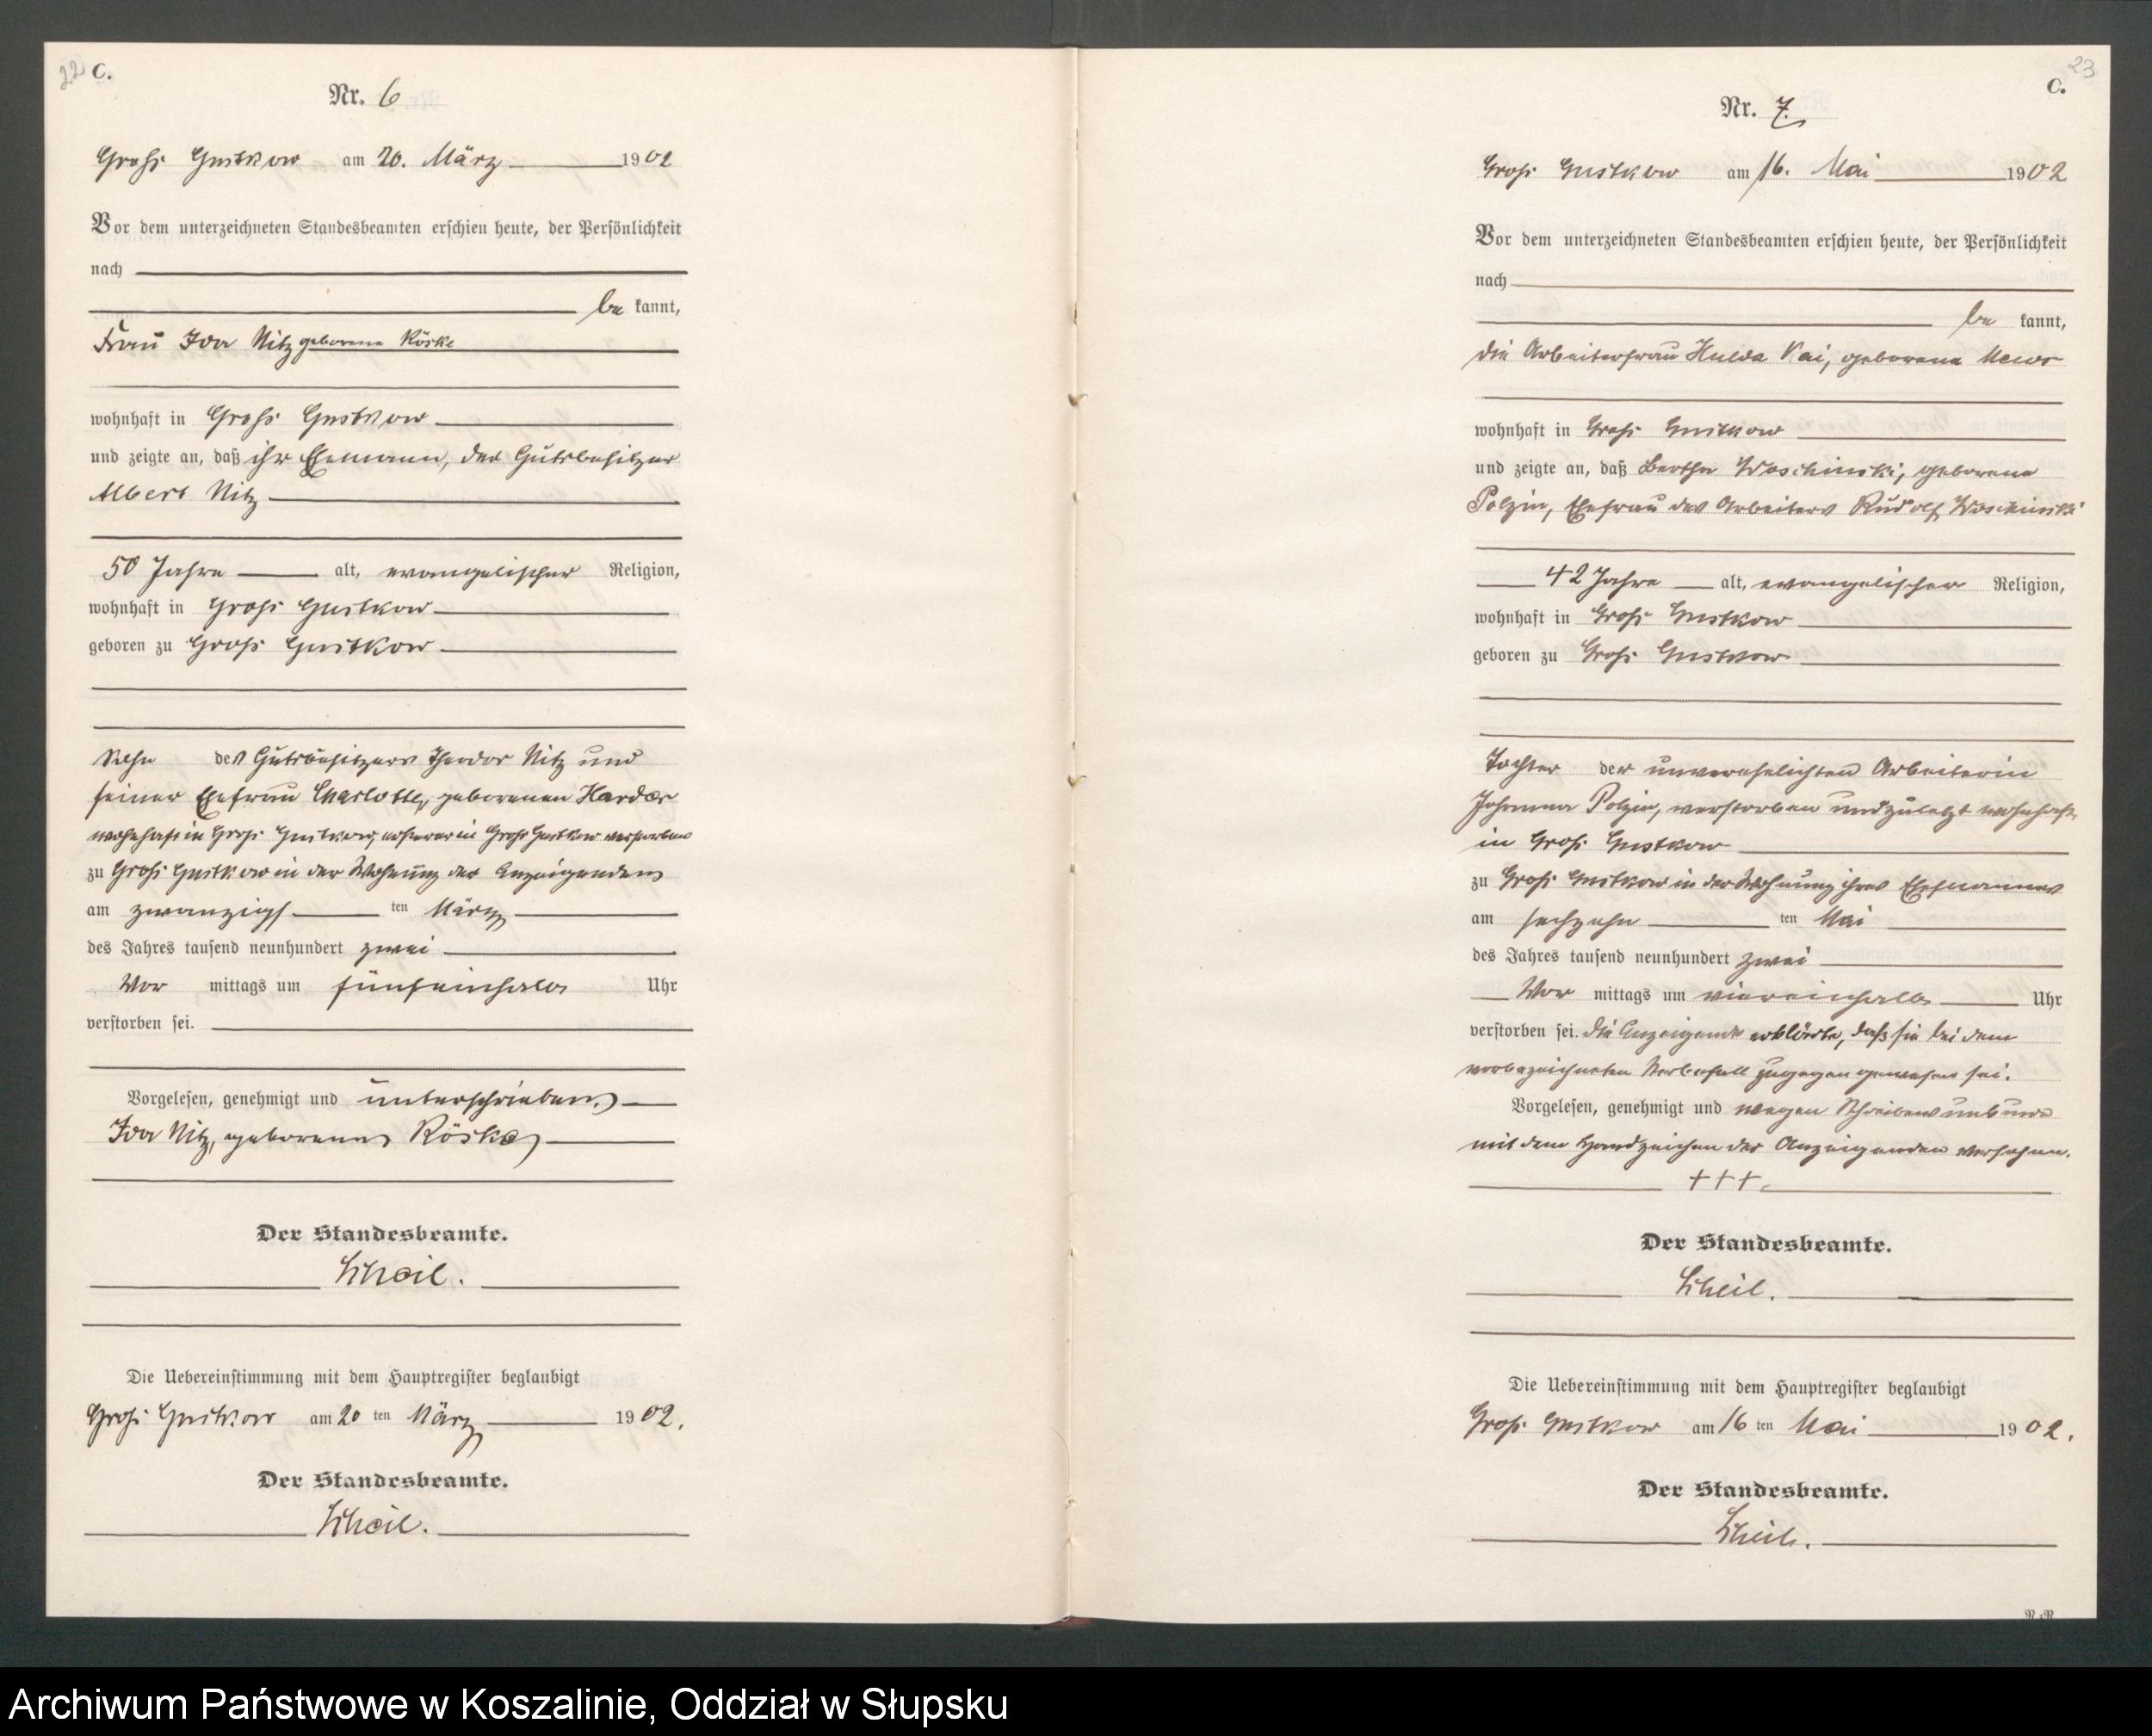 22 C.
Nr. 6
Groß Gustkow am 20. März 1902
Vor dem unterzeichneten Standesbeamten erschien heute, der Persönlichkeit
nach
be kannt,
Frau Ida Nitz geborene Röske
wohnhaft in Groß Gustkow
und zeigte an, daß ihr Ehemann, der Gutsbesitzer
Albert Nitz
50 Jahre alt, evangelischer Religion,
wohnhaft in Groß Gustkow
geboren zu Groß Gustkow
Sohn des Gutsbesitzers Theodor Nitz und
seiner Ehefrau Charlotte, geborenen Harder
wohnhaft in Groß Gustkow, ersterer in Groß Gustkow verstorben
zu Groß Gustkow in der Wohnung der Anzeigenden
am zwanzigsten März
des Jahres tausend neunhundert zwei
Vor mittags um fünfeinhalb Uhr
verstorben sei.
Vorgelesen, genehmigt und unterschrieben
Ida Nitz, geborene Röske
Der Standesbeamte.
Scheil.
Die Uebereinstimmung mit dem Hauptregister beglaubigt
Groß Gustkow am 20 ten März 1902.
Der Standesbeamte.
Scheil.
23
C.
Nr. 7.
Groß Gustkow am 16. Mai 1902
Vor dem unterzeichneten Standesbeamten erschien heute, der Persönlichkeit
nach
be kannt,
die Arbeiterfrau Hulda Kai, geborene Mews
wohnhaft in Groß Gustkow
und zeigte an, daß Bertha Woschinski, geborene
Polzin, Ehefrau des Arbeiters Rudolf Woschinski
42 Jahre alt, evangelischer Religion,
wohnhaft in Groß Gustkow
geboren zu Groß Gustkow
Tochter der unverehelichten Arbeiterin
Johanna Polzin, verstorben und zuletzt wohnhaft
in Groß Gustkow
zu Groß Gustkow in der Wohnung ihres Ehemannes
am sechzehn ten Mai
des Jahres tausend neunhundert zwei
Vor mittags um viereinhalb Uhr
verstorben sei. Die Anzeigende erklärte, daß sie bei dem
vorbezeichneten Sterbefall zugegen gewesen sei.
Vorgelesen, genehmigt und wegen Schreibensunkunde
mit dem Handzeichen der Anzeigenden versehen.
+++.
Der Standesbeamte.
Scheil.
Die Uebereinstimmung mit dem Hauptregister beglaubigt
Groß Gustkow am 16 ten Mai 1902.
Der Standesbeamte.
Scheil.
Archiwum Państwowe w Koszalinie, Oddział w Słupsku